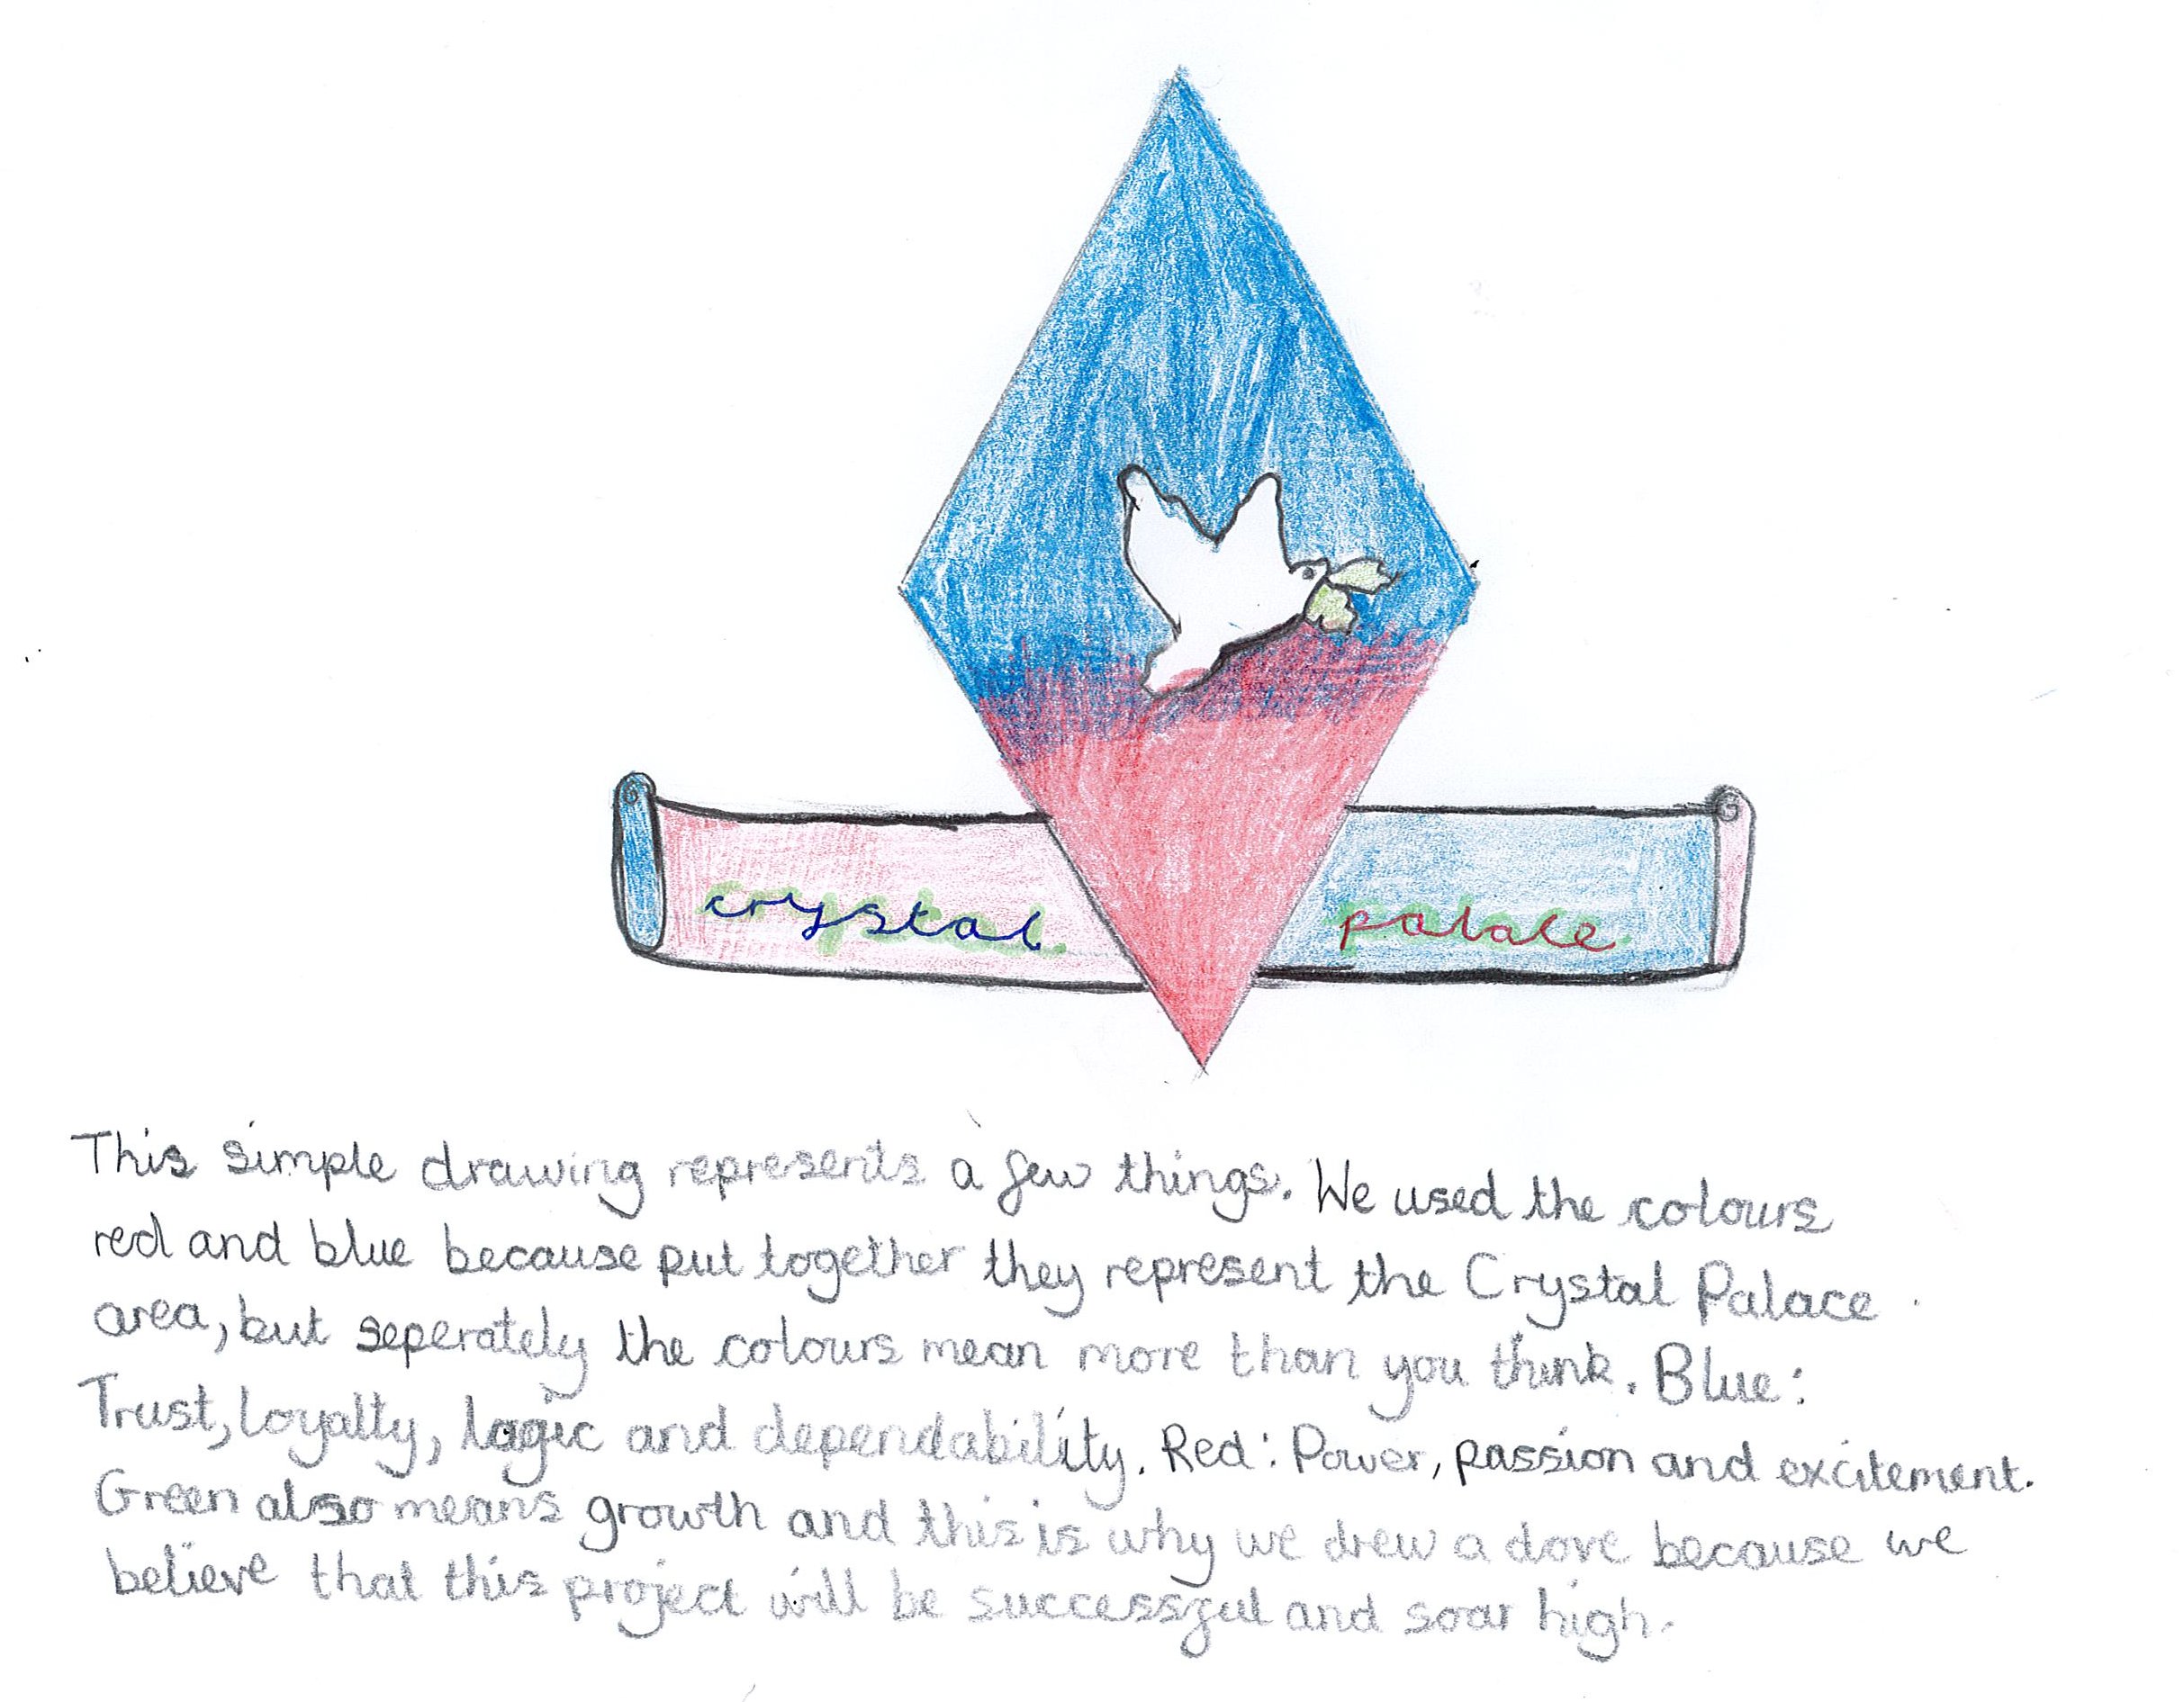 crystal palace
This simple drawing represents a few things. We used the colours
red and blue because put together they represent the Crystal Palace
area, but seperately the colours mean more than you think. Blue:
Trust, loyalty, logic and dependability. Red: Power, passion and excitement.
Green also means growth and this is why we drew a dove because we
believe that this project will be successful and soar high.